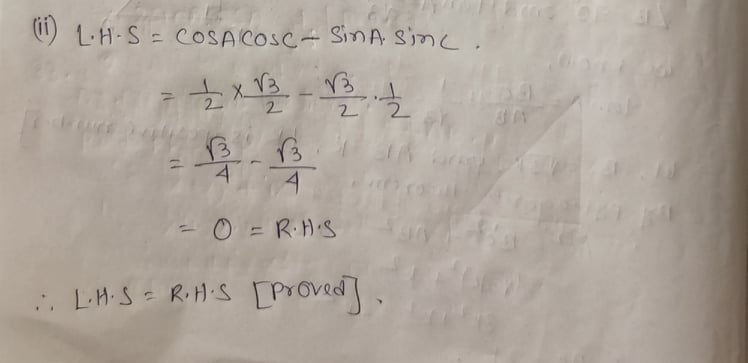 (ii) L.H.S = COSACOSC - SinA. Sinc.
= 1/2 × √3/2 - √3/2 . 1/2
= √3/4 - √3/4
= 0 = R.H.S
∴ L.H.S = R.H.S [Proved].